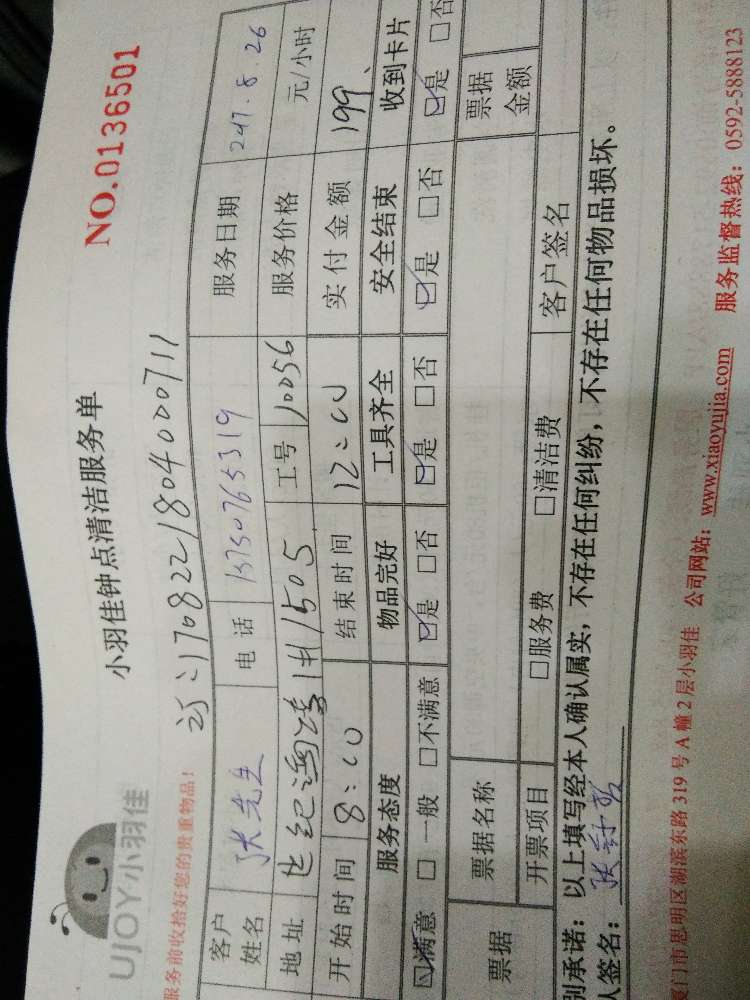 UJOY小羽佳
小羽佳钟点清洁服务单
NO.0136501
服务前收拾好您的贵重物品!
170822180400711
客户姓名 张先生 电话 13750765319 服务日期 2017.8.26
地址 世纪 1505 工号 10056 服务价格 元/小时
开始时间 8:00 结束时间 12:00 实付金额 199
服务态度 物品完好 工具齐全 安全结束 收到卡片
☑满意 □一般 □不满意 ☑是 □否 ☑是 □否 ☑是 □否 ☑是 □否
票据 票据名称 票据金额
开票项目 □服务费 □清洁费 客户签名
别承诺:以上填写经本人确认属实,不存在任何纠纷,不存在任何物品损坏。
人签名:
厦门市思明区湖滨东路319号A幢2层小羽佳 公司网站:www.xiaoyujia.com 服务监督热线:0592-5888123